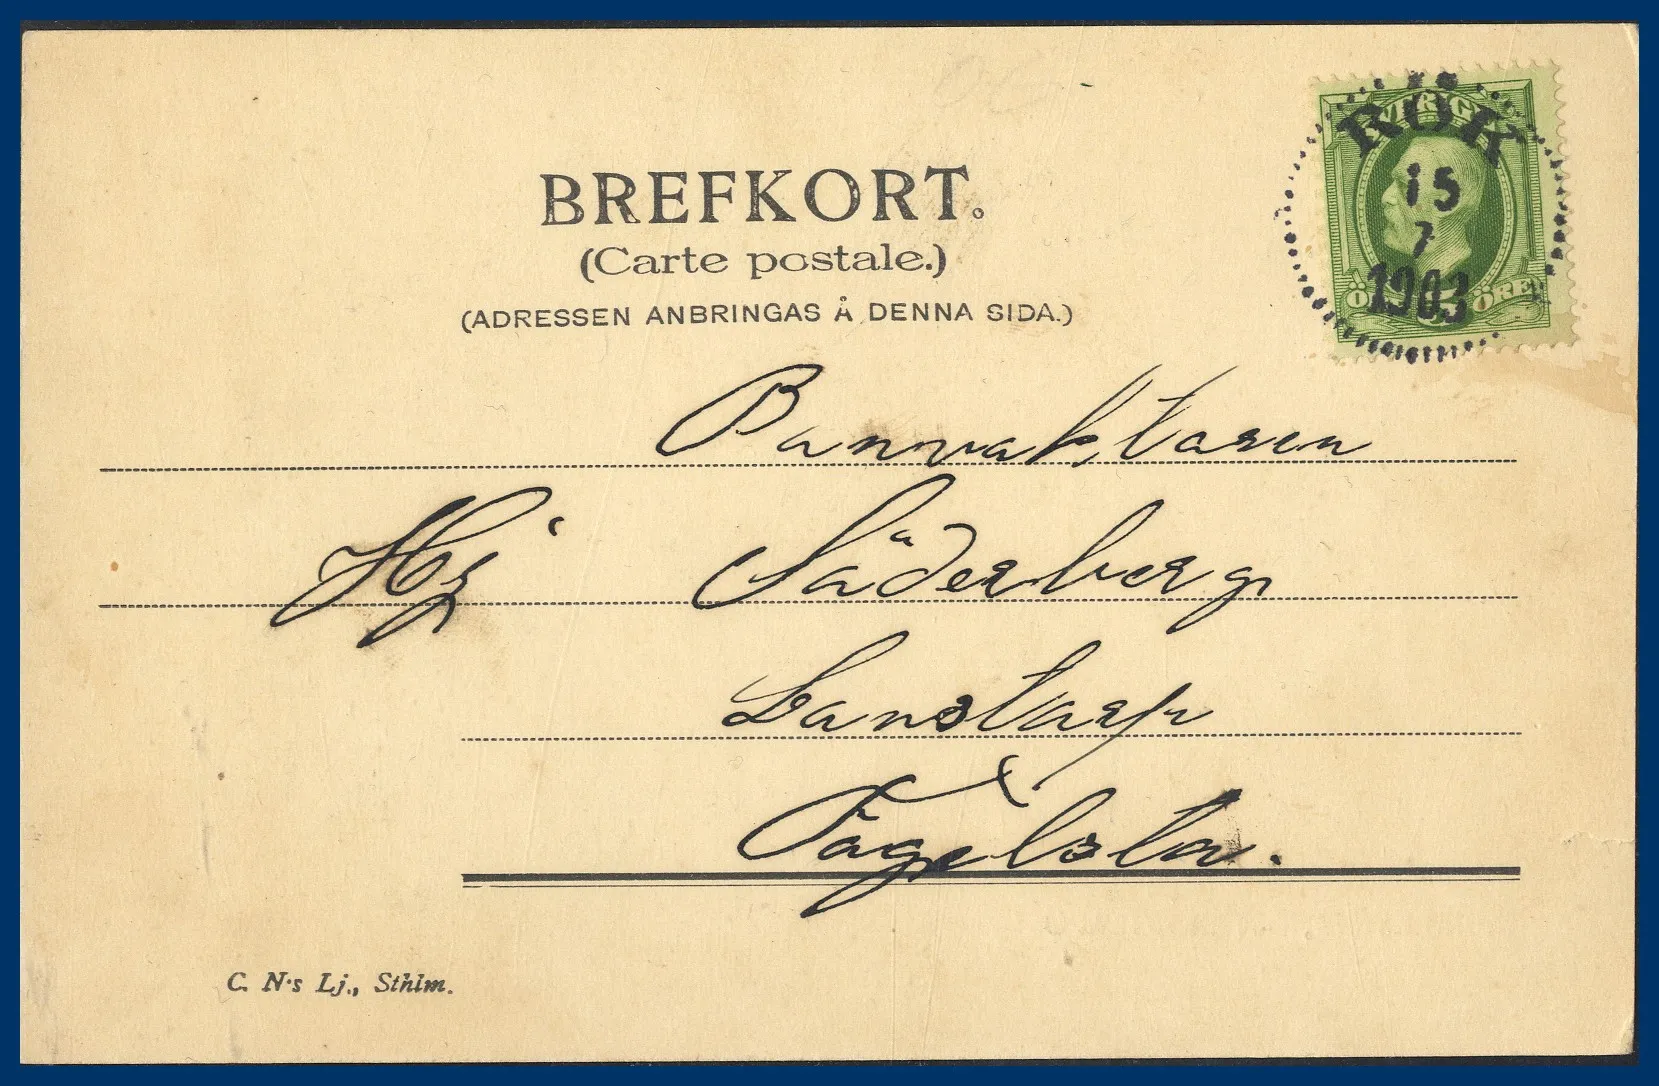 BREFKORT.
(Carte postale.)
(ADRESSEN ANBRINGAS Å DENNA SIDA.)
SVERIGE
RÖK
15
7
1903
ÖRE 5 ÖRE
Banvaktaren
Hj Söderberg
Banstorp
Fågelsta.
C. N:s Lj., Sthlm.